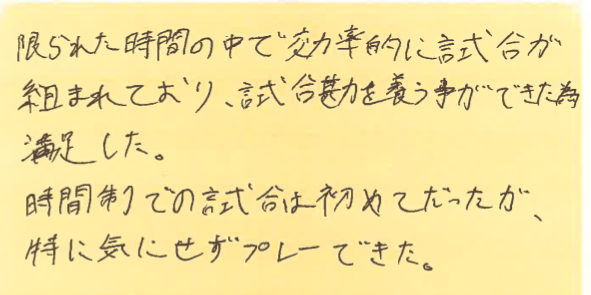 限られた時間の中で効率的に試合が
組まれており、試合勘を養う事ができた為
満足した。
時間制での試合は初めてだったが、
特に気にせずプレーできた。